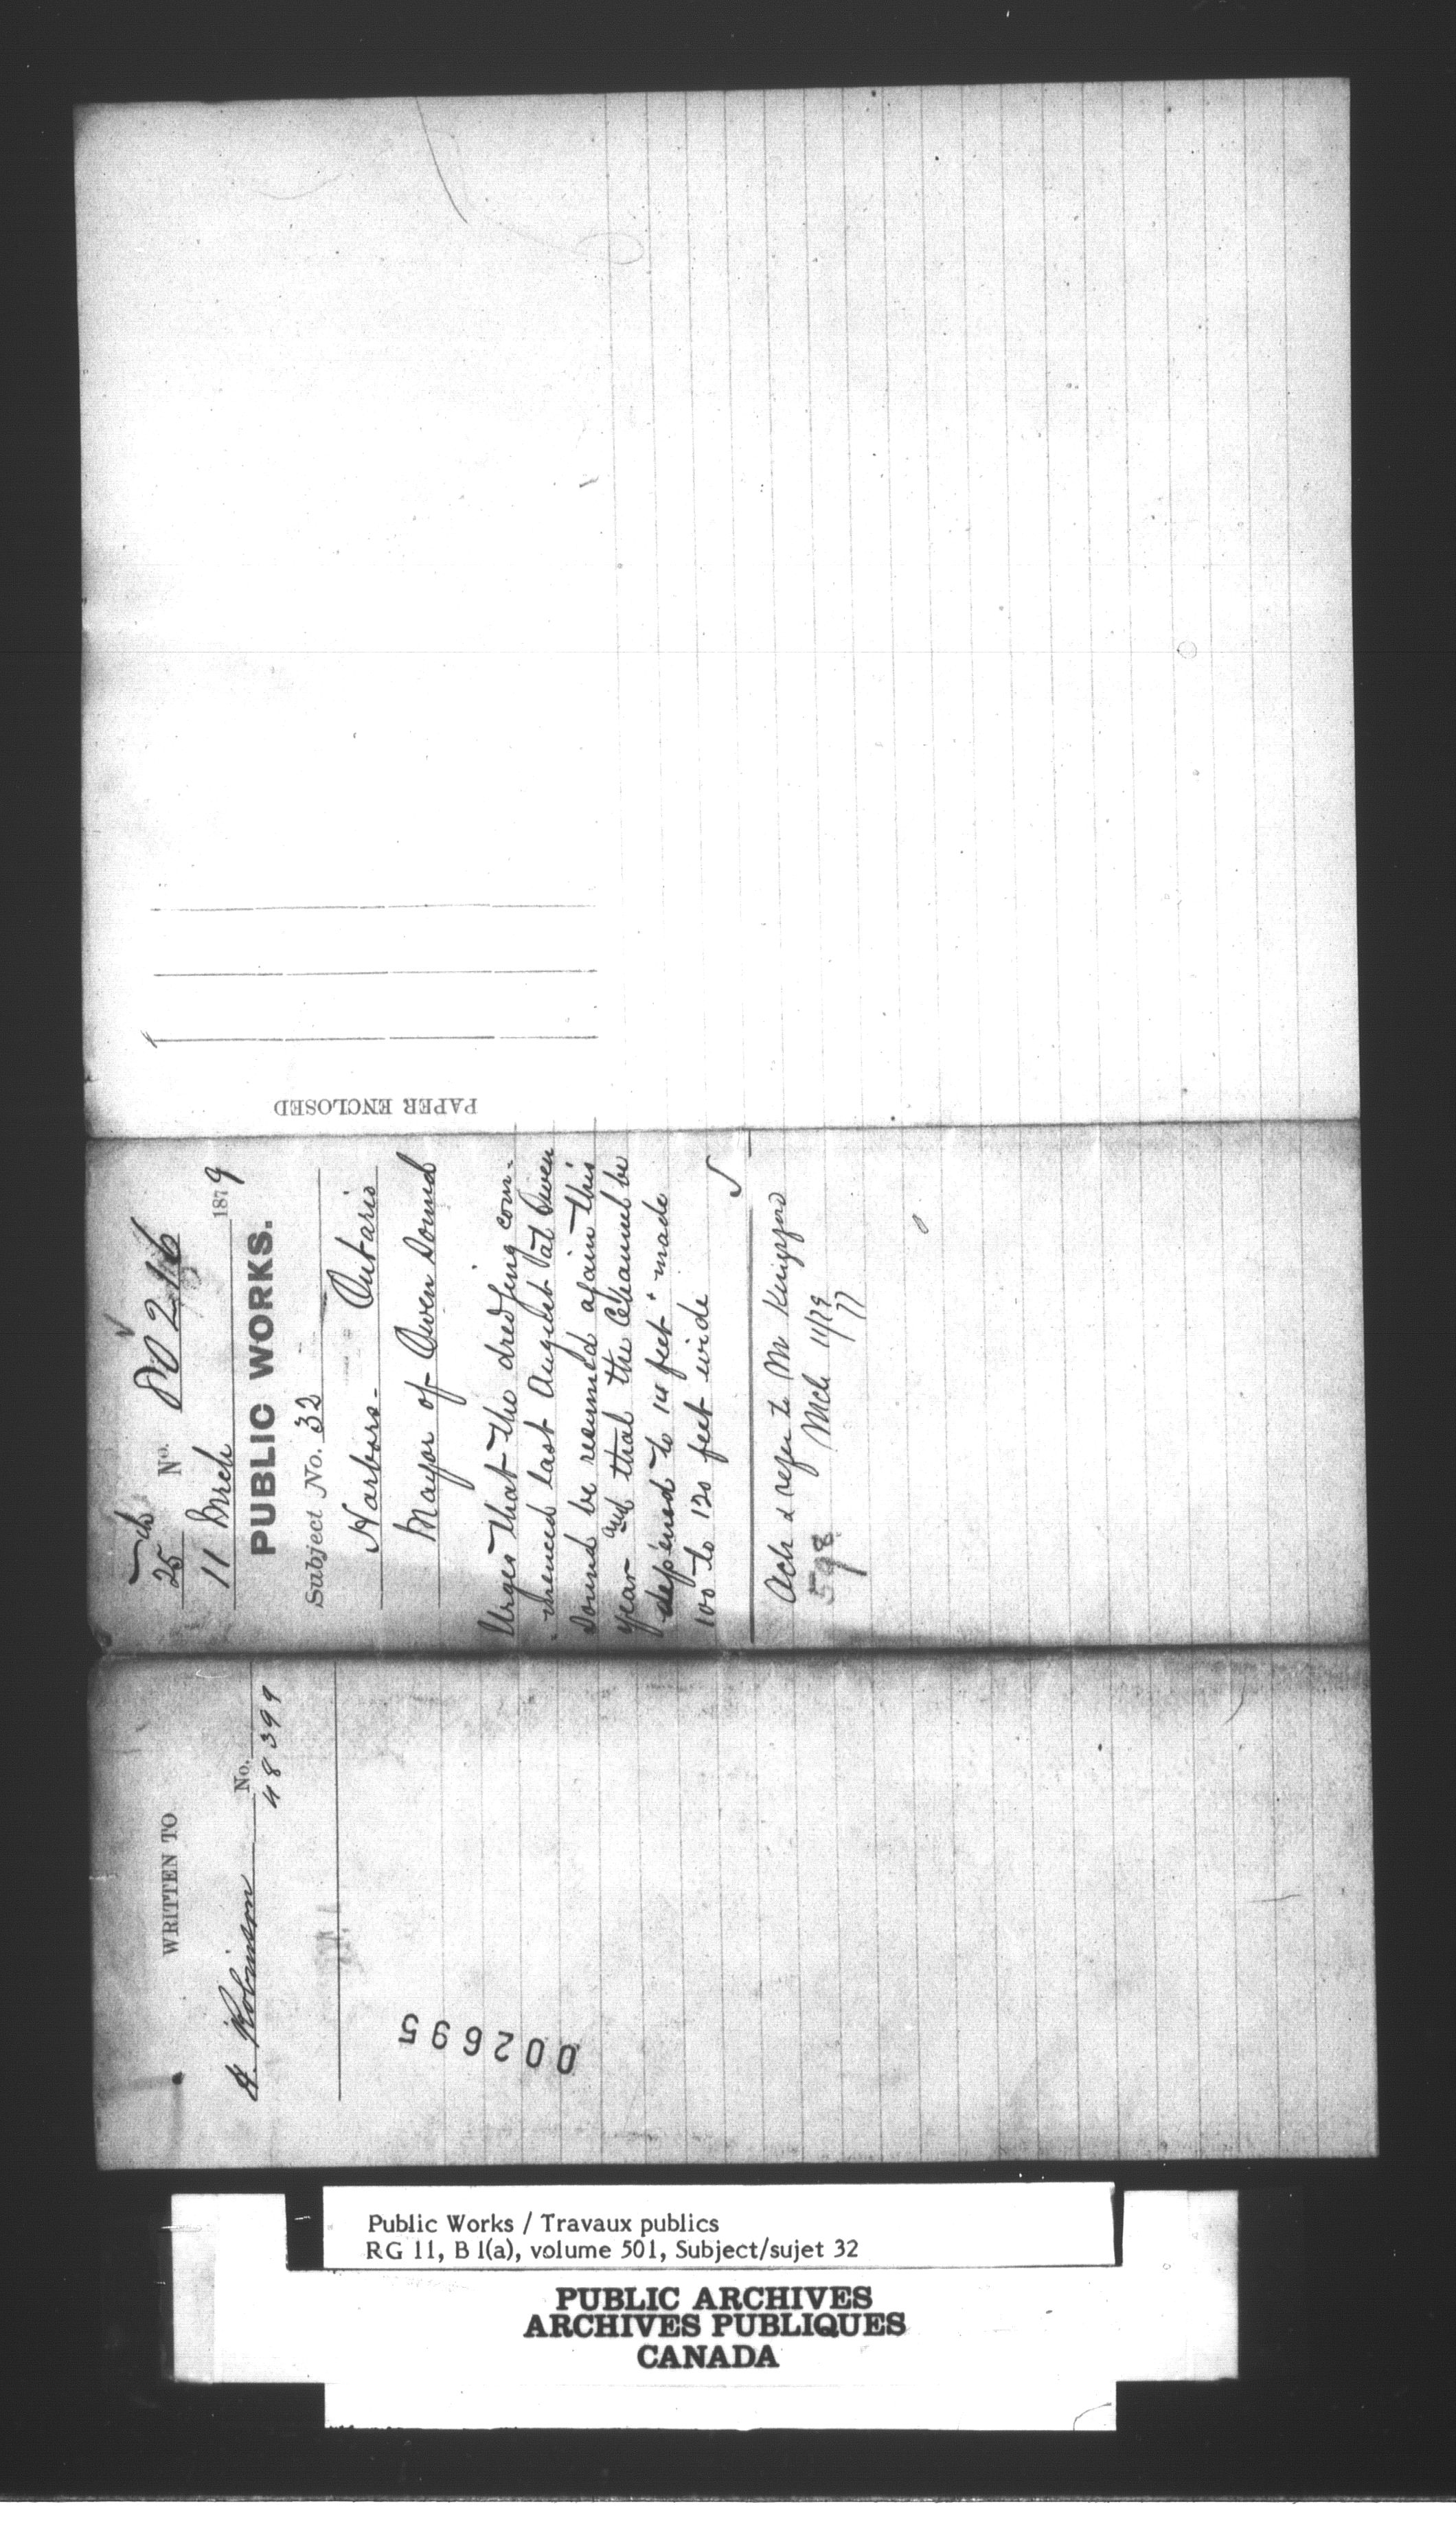 PAPER ENCLOSED
25
No. 80216
11 Mrch 1879
PUBLIC WORKS.
Subject No. 32
Harbors - Ontario
Mayor of Owen Sound
Urges that the dredging com-
menced last August at Owen
Sound be resumed again this
year and that the Channel be
deepened to 14 feet & made
100 to 120 feet wide
Ack & refer to Mr Kingford
Mch 11/79
598
WRITTEN TO
No.
H. Robinson 48399
002695
Public Works / Travaux publics
RG 11, B 1(a), volume 501, Subject/sujet 32
PUBLIC ARCHIVES
ARCHIVES PUBLIQUES
CANADA